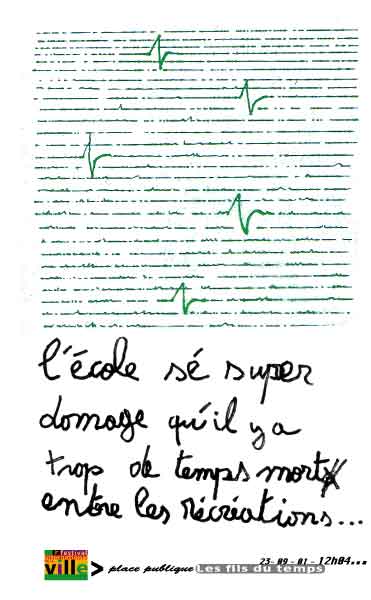 l'école sé super
domage qu'il y a
trop de temps morts
entre les récréations...
23-09-01-12h04...
festival
ville > place publique Les fils du temps